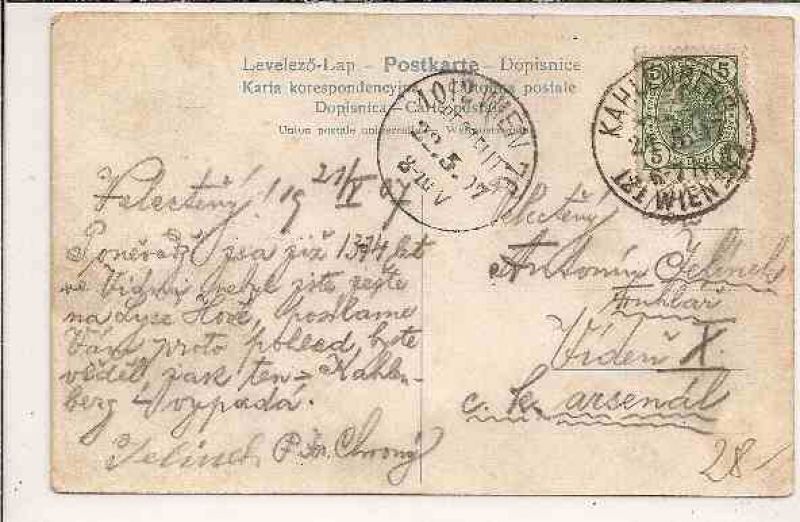 Levelező-Lap – Postkarte – Dopisnice
Karta korespondencyjna – Cartolina postale
Dopisnica – Carte postale
Union postale universelle – Weltpostverein
5 5
5
KAHLENBERG
121 WIEN
WIEN
22.5.07
8-10 V
Velectěný! 19 21/V 07
Poněvadž jsa již 13¾ let
ve Vídni, nebyl jste ještě
na Lysé Hoře, posíláme
Vám proto pohled, byste
věděl jak ten „Kahlen-
berg“ vypadá.
Jelínek P. Fr. Chvosný
Velectěný
Antonín Jelínek
Truhlář
Vídeň X.
c. k. arsenál
28